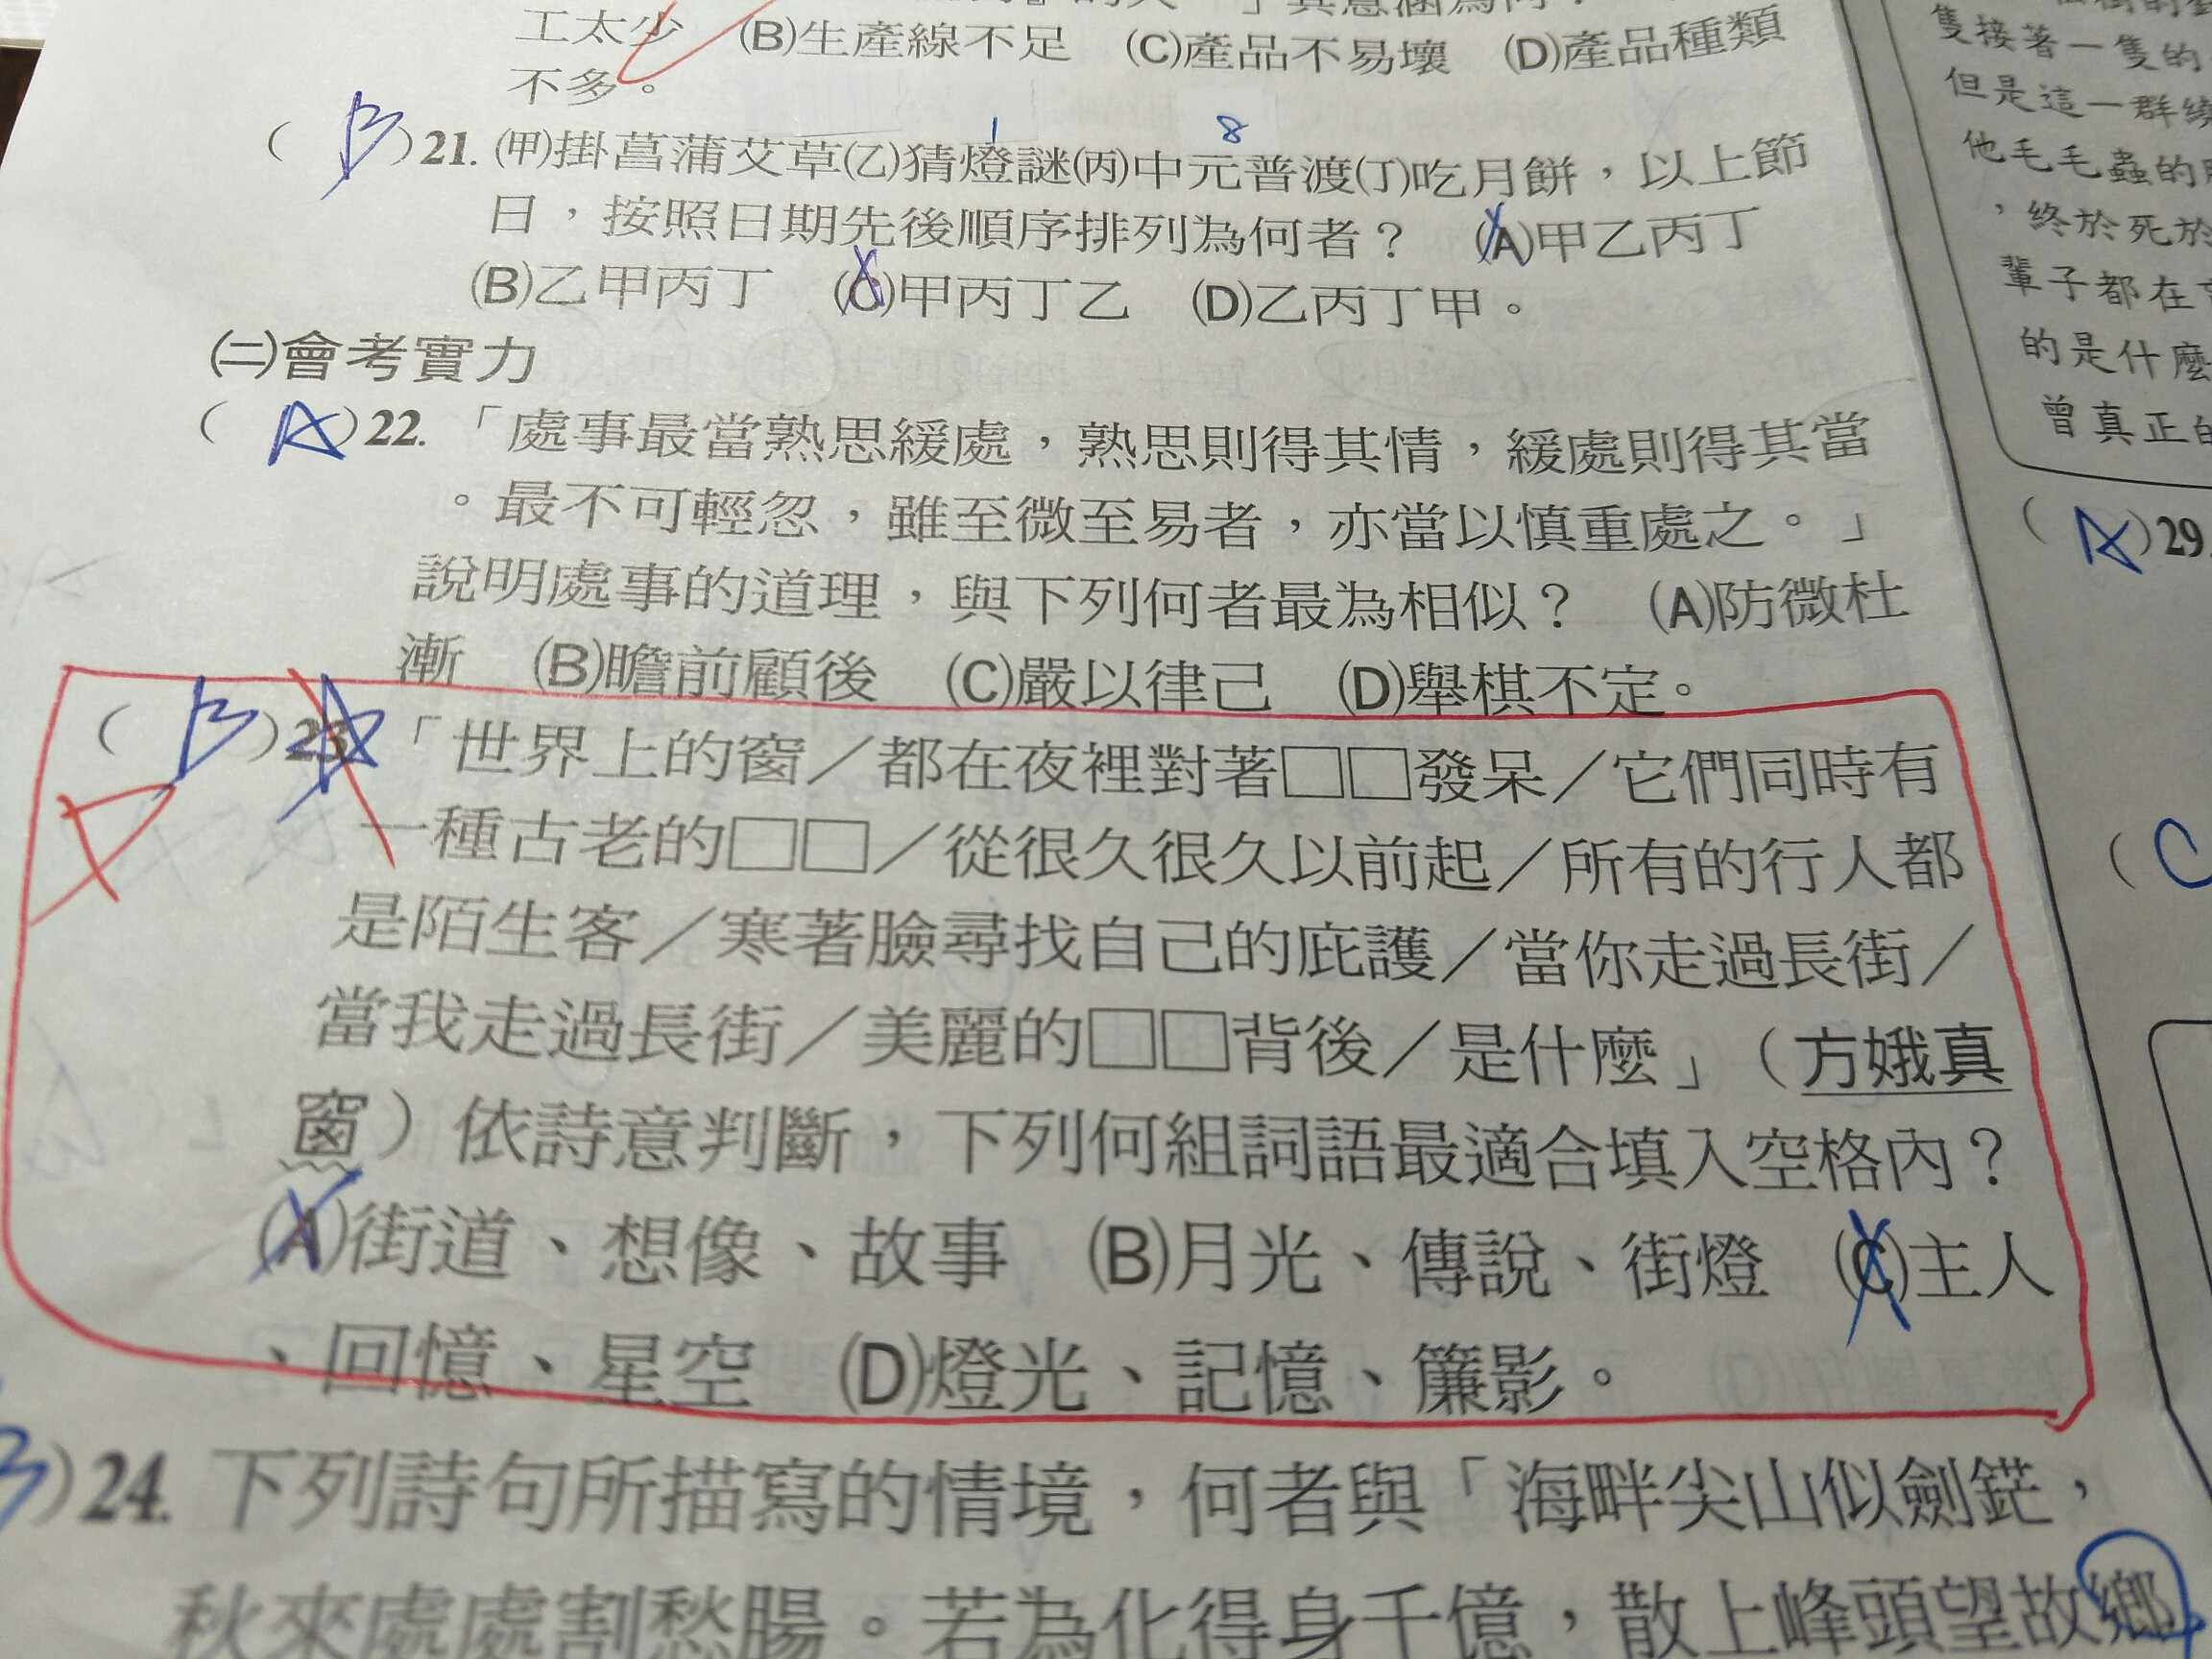 工太少 (B)生產線不足 (C)產品不易壞 (D)產品種類
不多。
1 8
( B )21. (甲)掛菖蒲艾草(乙)猜燈謎(丙)中元普渡(丁)吃月餅，以上節
日，按照日期先後順序排列為何者？ (A)甲乙丙丁
(B)乙甲丙丁 (C)甲丙丁乙 (D)乙丙丁甲。
(二)會考實力
( A )22. 「處事最當熟思緩處，熟思則得其情，緩處則得其當
。最不可輕忽，雖至微至易者，亦當以慎重處之。」
說明處事的道理，與下列何者最為相似？ (A)防微杜
漸 (B)瞻前顧後 (C)嚴以律己 (D)舉棋不定。
( B )23. 「世界上的窗／都在夜裡對著□□發呆／它們同時有
一種古老的□□／從很久很久以前起／所有的行人都
是陌生客／寒著臉尋找自己的庇護／當你走過長街／
當我走過長街／美麗的□□背後／是什麼」（方娥真
窗）依詩意判斷，下列何組詞語最適合填入空格內？
(A)街道、想像、故事 (B)月光、傳說、街燈 (C)主人
、回憶、星空 (D)燈光、記憶、簾影。
B )24. 下列詩句所描寫的情境，何者與「海畔尖山似劍鋩，
秋來處處割愁腸。若為化得身千億，散上峰頭望故鄉
隻接著一隻的
但是這一群繞
他毛毛蟲的
，終於死於
輩子都在
的是什麼
曾真正的
( A )29.
( C